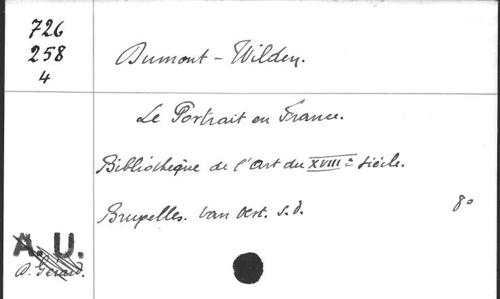 726
258
4
Dumont-Wilden.
Le Portrait en France.
Bibliothèque de l'art du XVIIIe Siècle.
Bruxelles. Van Oest. s.d. 8o
A. U.
D. Gérard.